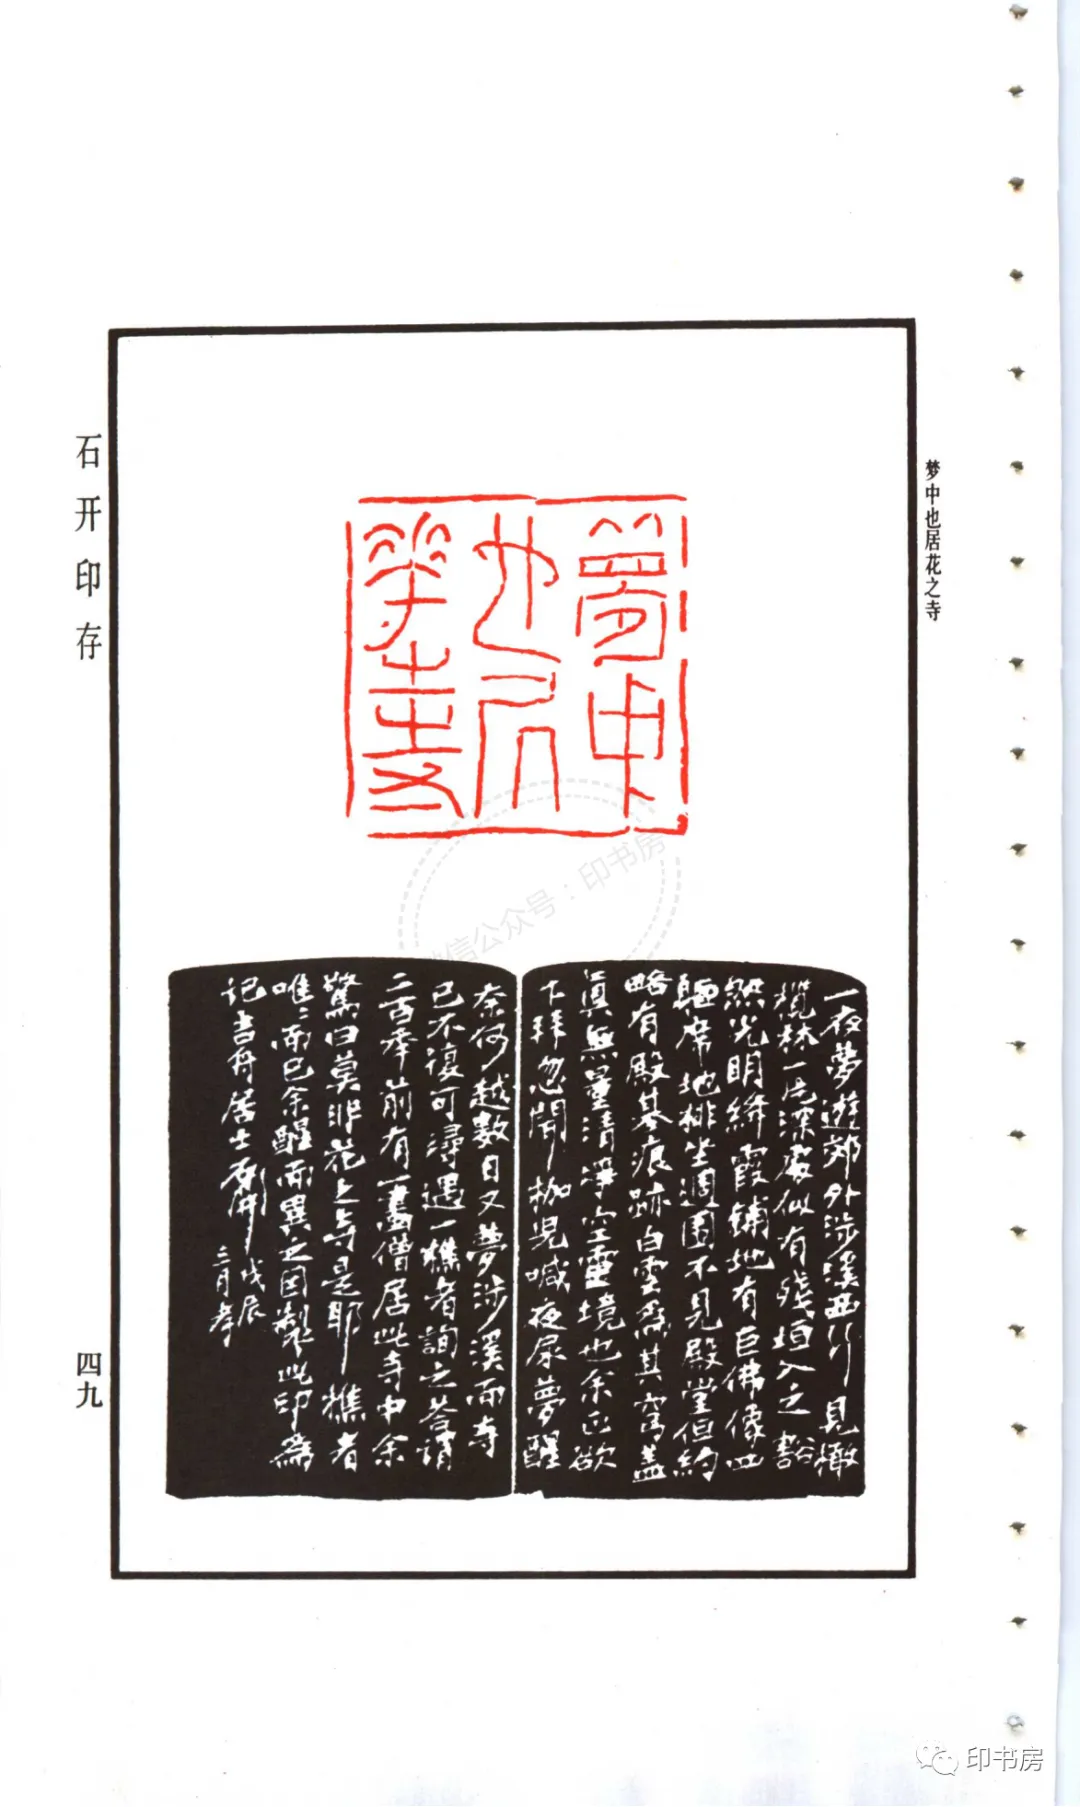 梦中也居花之寺
夢中
也居
花之寺
一夜夢遊郊外涉溪西行見橄
欖林一片深處似有殘垣入之豁
然光明綺霞鋪地有巨佛像四
軀席地排坐週圍不見殿堂但約
略有殿基痕跡白雲為其穹蓋
真無量清淨空靈境也余正欲
下拜忽聞枷兒喊夜尿夢醒
奈何越數日又夢涉溪而寺
已不復可尋遇一樵者詢之答謂
二百年前有一畫僧居此寺中余
驚曰莫非花之寺是耶樵者
唯唯而已余醒而異之因製此印為
記書舟居士石開戊辰
三月
石开印存
四九
微信公众号：印书房
印书房